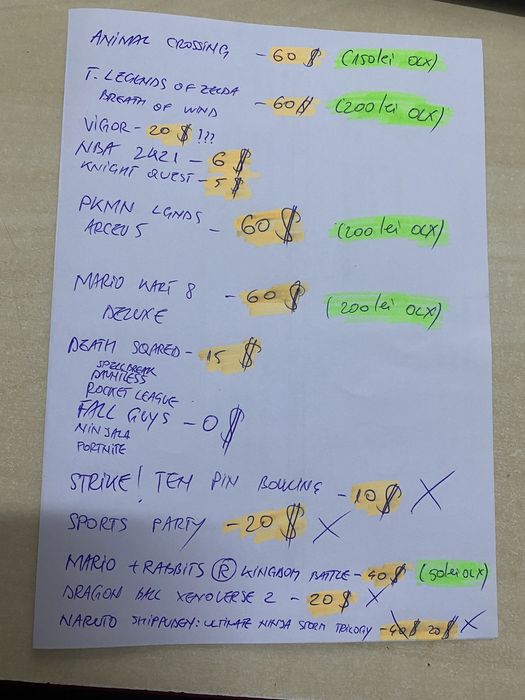 ANIMAL CROSSING - 60 $ (150 lei OLX)
T. LEGENDS OF ZELDA
BREATH OF WIND - 60 $ (200 lei OLX)
VIGOR - 20 $ ???
NBA 2K21 - 6 $
KNIGHT QUEST - 5 $
PKMN LGNDS
ARCEUS - 60 $ (200 lei OLX)
MARIO KART 8 - 60 $ (200 lei OLX)
DELUXE
DEATH SQARED - 15 $
SPELLBREAK
DAUNTLESS
ROCKET LEAGUE
FALL GUYS - 0 $
NINJALA
FORTNITE
STRIKE! TEN PIN BOWLING - 10 $ X
SPORTS PARTY - 20 $ X
MARIO + RABBITS ® KINGDOM BATTLE - 40 $ (50 lei OLX)
DRAGON BALL XENOVERSE 2 - 20 $ X
NARUTO SHIPPUDEN: ULTIMATE NINJA STORM TRILOGY - 40 $ 20 $ X